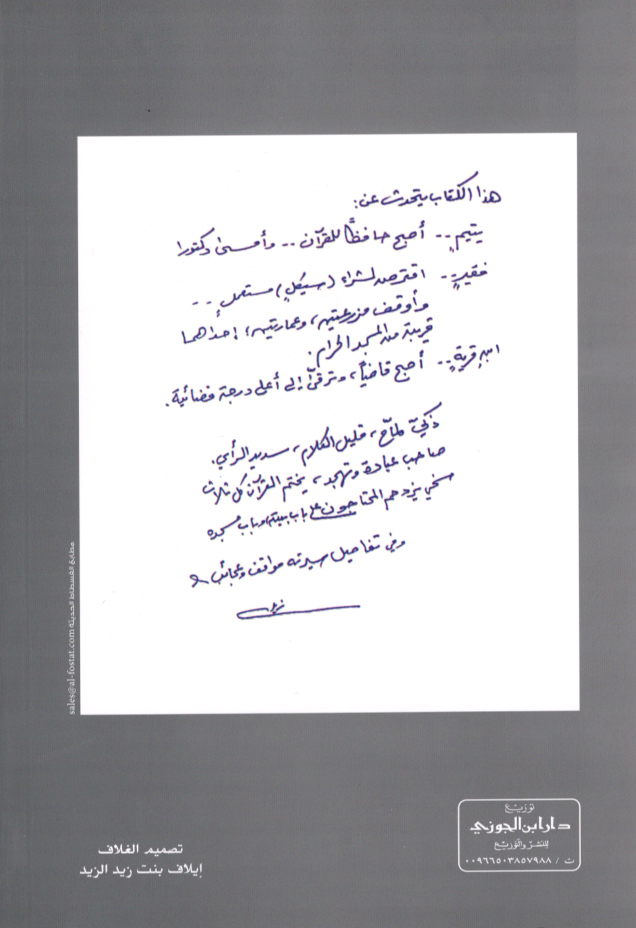 هذا الكتاب يتحدث عن:
يتيمٍ.. أصبح حافظًا للقرآن.. وأمسى دكتورا
فقيرٍ.. اقترض لشراء (سيكل) مستعمل..
وأوقف مزرعتين، وعمارتين، إحداهما
قريبة من المسجد الحرام.
ابن قريةٍ.. أصبح قاضياً، وترقّى إلى أعلى درجة قضائية.
ذكيّ لمّاح، قليل الكلام، سديد الرأي.
صاحب عبادة وتهجد، يختم القرآن كل ثلاث
سخي يزدحم المحتاجون على باب بيته وباب مسجده
وفي تفاصيل سيرته مواقف وعجائب
مطابع الفسطاط الحديثة sales@al-fostat.com
توزيع
دار ابن الجوزي
للنشر والتوزيع
ت / ٠٠٩٦٦٥٠٣٨٥٧٩٨٨
تصميم الغلاف
إيلاف بنت زيد الزيد